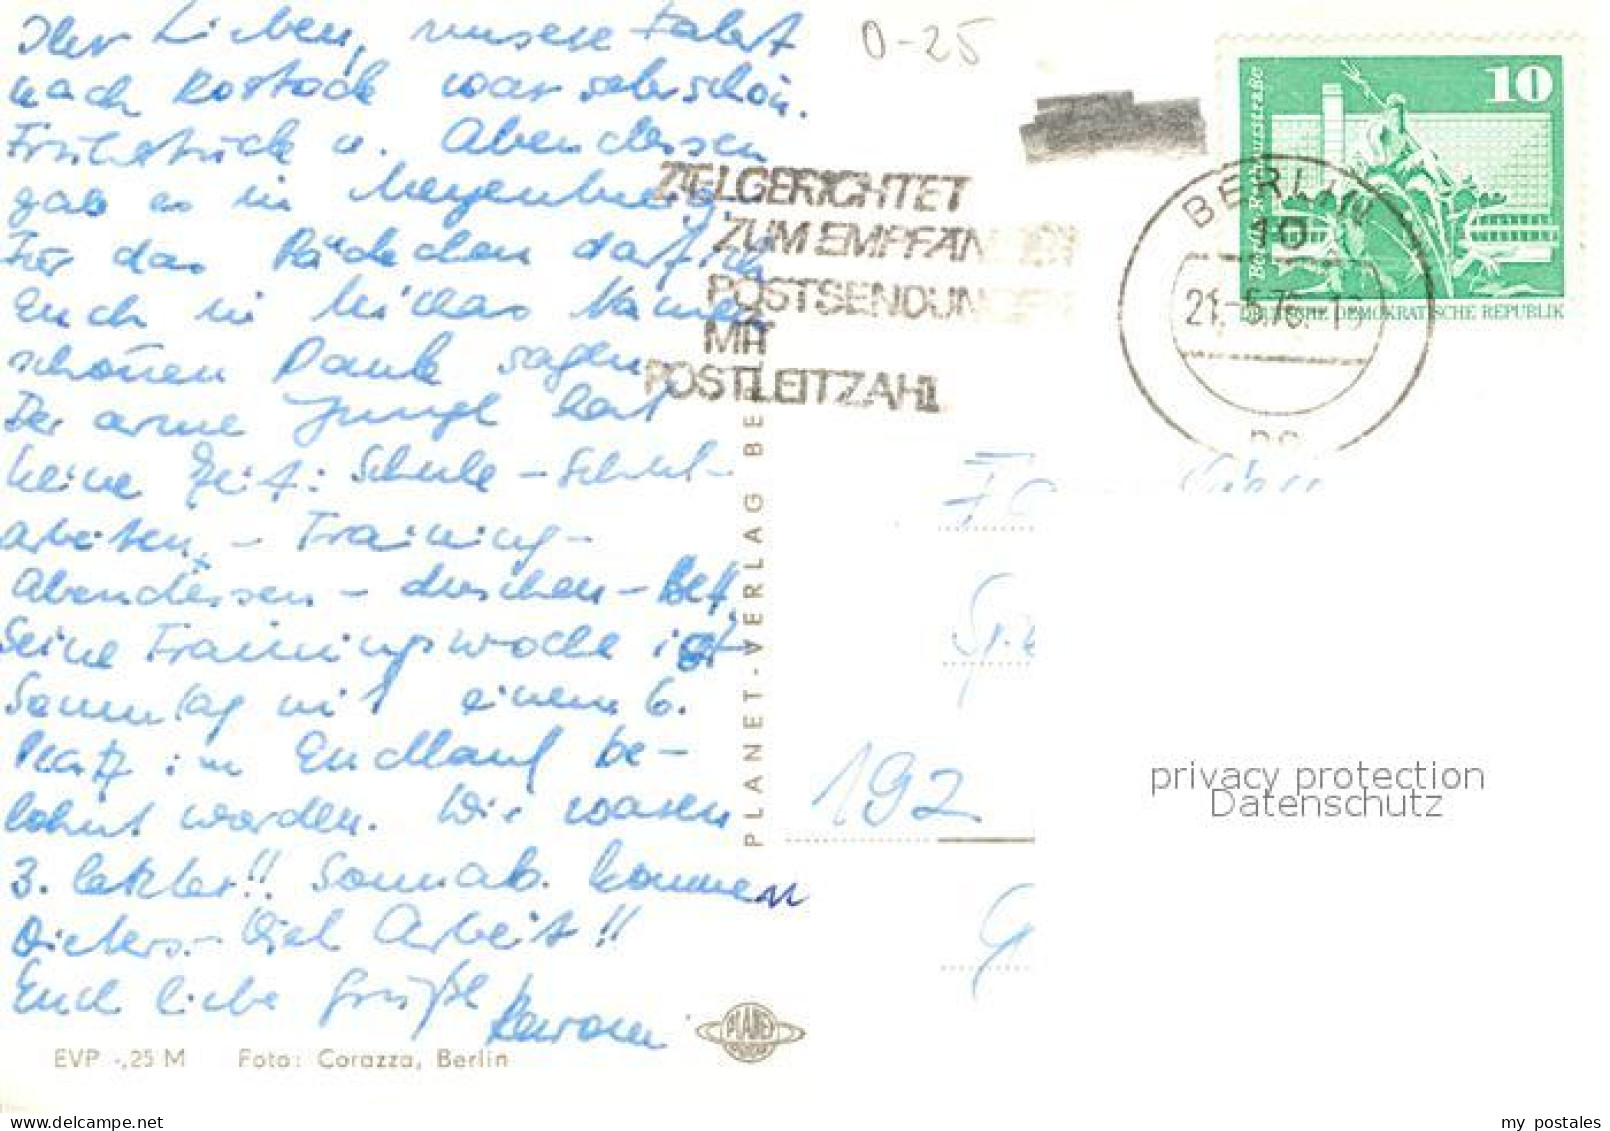 Ihr Lieben, unsere Fahrt
nach Rostock war sehr schön.
Frühstück u. Abendessen
gab es in Meyenburg.
Für das Päckchen darf ich
Euch in Midas Namen
schönen Dank sagen.
Der arme Junge hat
keine Zeit: Schule – Schul-
arbeiten – Training –
Abendessen – duschen – Bett.
Seine Trainingswoche ist
Sonntag mit einem 6.
Platz im Endlauf be-
lohnt worden. Wir waren
3. letzter!! Sonnab. kommen
Dieters. – Viel Arbeit!!
Euch liebe Grüße
EVP -,25 M Foto: Corazza, Berlin
PLANET
PLANET-VERLAG BE
0-25
ZIELGERICHTET
ZUM EMPFÄN
POSTSENDUNGEN
MIT
POSTLEITZAHL
BERLIN
10
21.-5.76.-
10
Berlin, Rathausstraße
DEUTSCHE DEMOKRATISCHE REPUBLIK
192
privacy protection
Datenschutz
www.delcampe.net
my_postales